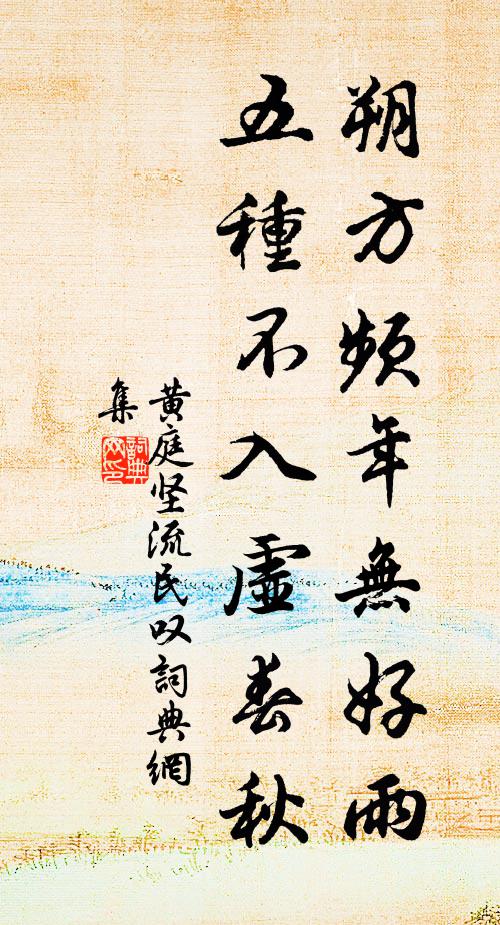 朔方頻年無好雨
五種不入虛春秋
黄庭坚流民叹詞典網
集
詞典